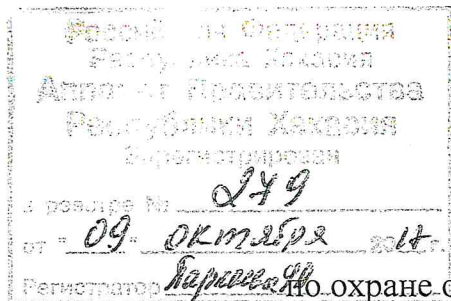 Российская Федерация
Республика Хакасия
Аппарат Правительства
Республики Хакасия
Зарегистрирован
в реестре № 279
от "09" октября 2017г.
Регистратор
по охране